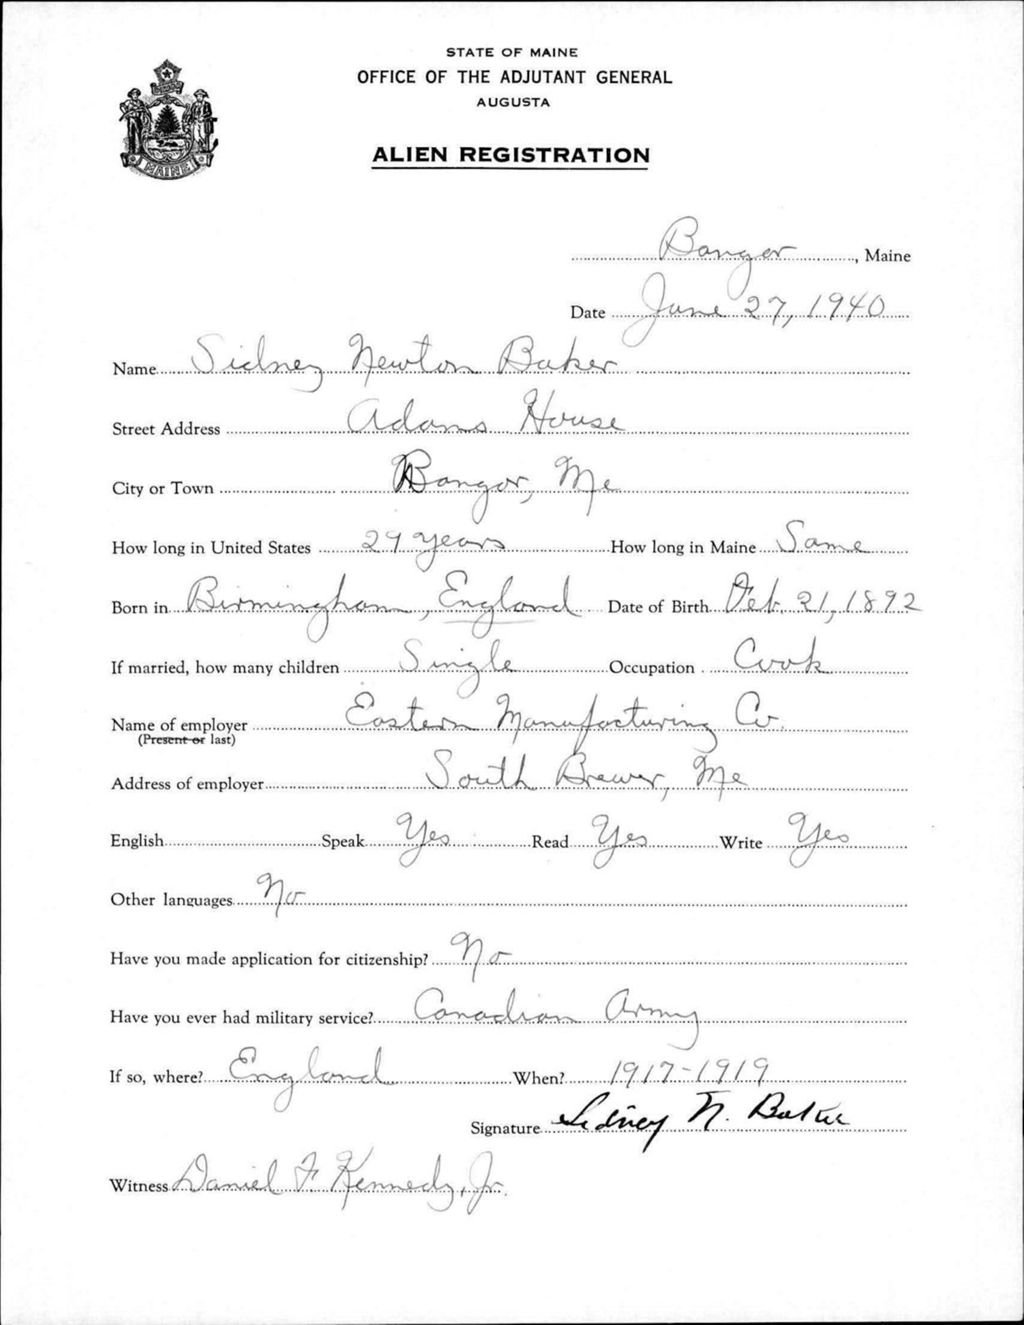 STATE OF MAINE
OFFICE OF THE ADJUTANT GENERAL
AUGUSTA
ALIEN REGISTRATION
MAINE
Bangor, Maine
Date June 27, 1940
Name Sidney Newton Baker
Street Address Adams House
City or Town Bangor, Me
How long in United States 29 years How long in Maine Same
Born in Birmingham, England Date of Birth Feb. 21, 1892
If married, how many children Single Occupation Cook
Name of employer Eastern Manufacturing Co.
(Present or last)
Address of employer South Brewer, Me
English Speak Yes Read Yes Write Yes
Other languages No
Have you made application for citizenship? No
Have you ever had military service? Canadian Army
If so, where? England When? 1917-1919
Signature Sidney N. Baker
Witness Daniel F. Kennedy, Jr.